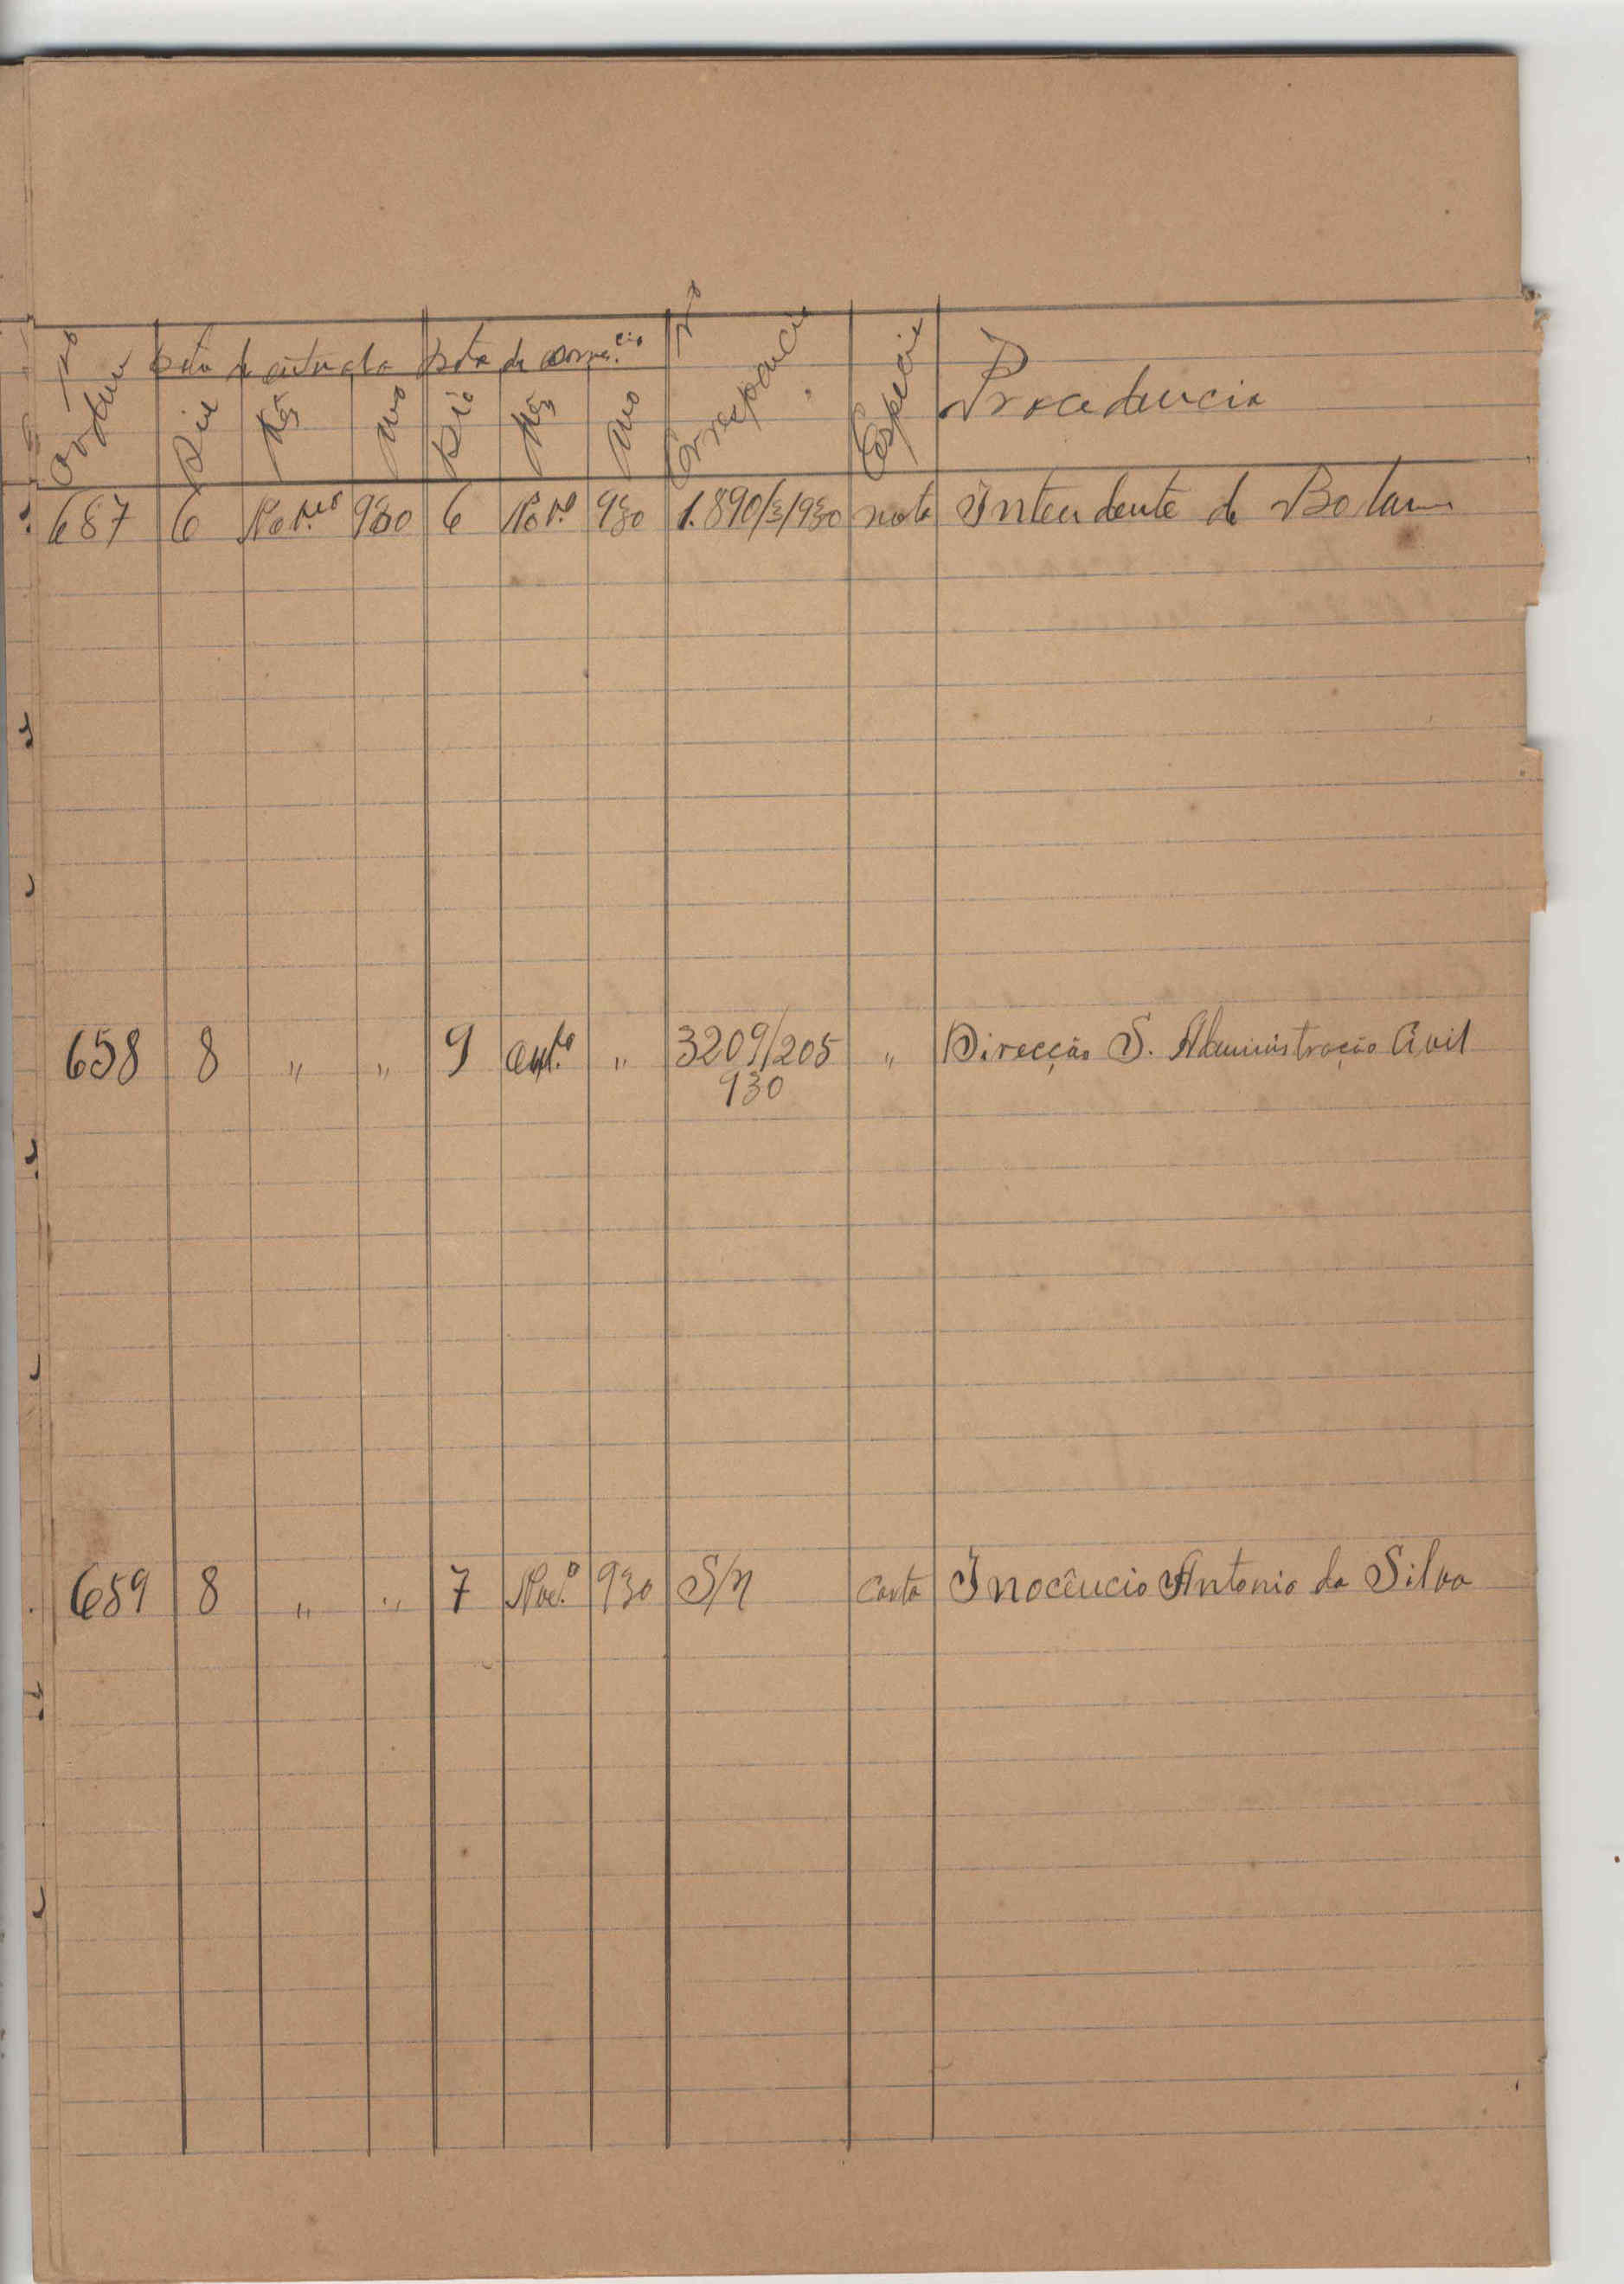 Nº Ordem Data de entrada Data da corres.cia Nº Correspªencia Especie Procedencia
Dia Mês Ano Dia Mês Ano
687 6 Nov.bro 930 6 Nov.º 930 1.890/3/930 nota Intendente de Bolama
658 8 " " 9 Out.º " 3209/205 " Direcção S. Administração Civil
930
659 8 " " 7 Nov.º 930 S/n Carta Inocêncio Antonio da Silva